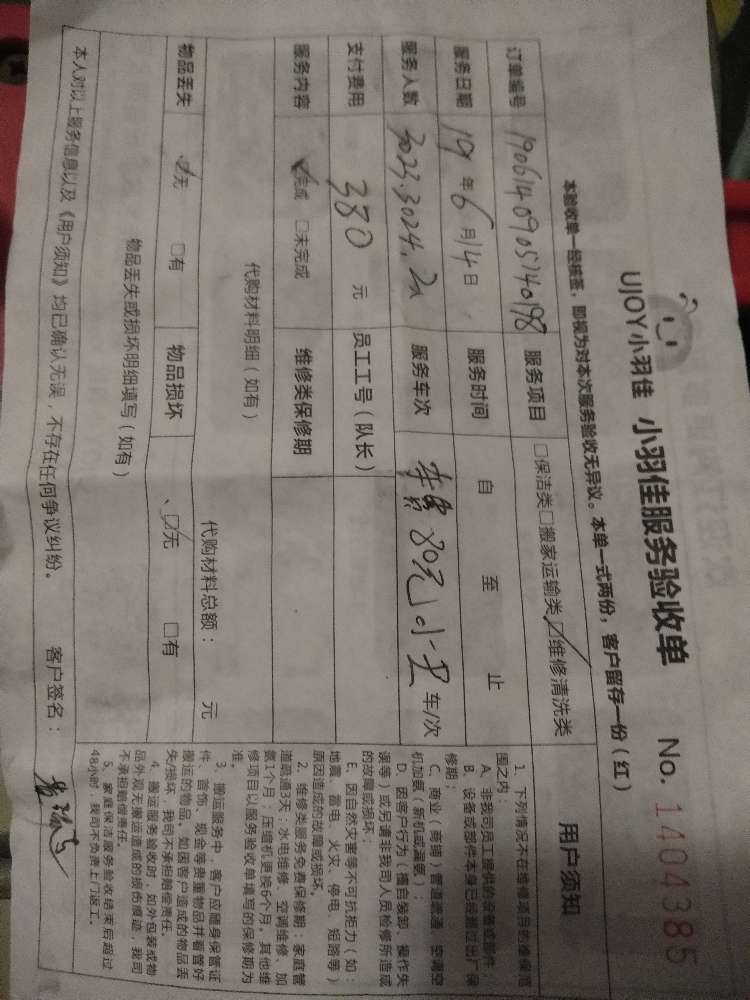 UJOY小羽佳 小羽佳服务验收单 No. 1404385
本验收单一经核签，即视为对本次服务验收无异议。本单一式两份，客户留存一份（红）
订单编号 190614090574098 服务项目 □保洁类□搬家运输类☑维修清洗类
服务日期 19年6月14日 服务时间 自 至 止
服务人数 3023.3024. 2人 服务车次 80元 车/次
支付费用 380元 员工工号（队长）
服务内容 ☑完成 □未完成 维修类保修期
代购材料明细（如有） 代购材料总额： 元
物品丢失 ☑无 □有 物品损坏 ☑无 □有
物品丢失或损坏明细填写（如有）
本人对以上服务信息以及《用户须知》均已确认无误，不存在任何争议纠纷。 客户签名：
用户须知
1、下列情况不在维修项目的维保范
围之内
A、非我司员工提供的设备或部件
B、设备或部件本身已经超过出厂保
修期；
C、商业（商铺）管道疏通、空调空
机加氨（新机或漏氨）；
D、因客户行为（擅自装卸、操作失
误等）或另请非我司人员检修所造成
的故障或损坏；
E、因自然灾害等不可抗拒力（如：
地震、雷电、火灾、停电、短路等）
原因造成的故障或损坏。
2、维修类服务免费保修期：家庭管
道疏通3天；水电维修、空调维修、加
氨1个月；压缩机更换6个月，其他维
修项目以服务验收单填写的保修期为
准。
3、搬运服务中，客户应随身保管证
件、首饰、现金等贵重物品并看管好
搬运的物品，如因客户造成的物品丢
失/损坏，我司不承担赔偿责任。
4、搬运服务验收时，如外包装或物
品外观无搬运造成的损伤痕迹，我司
不承担赔偿责任。
5、家庭保洁服务验收结束后超过
48小时，我司不负责上门返工。